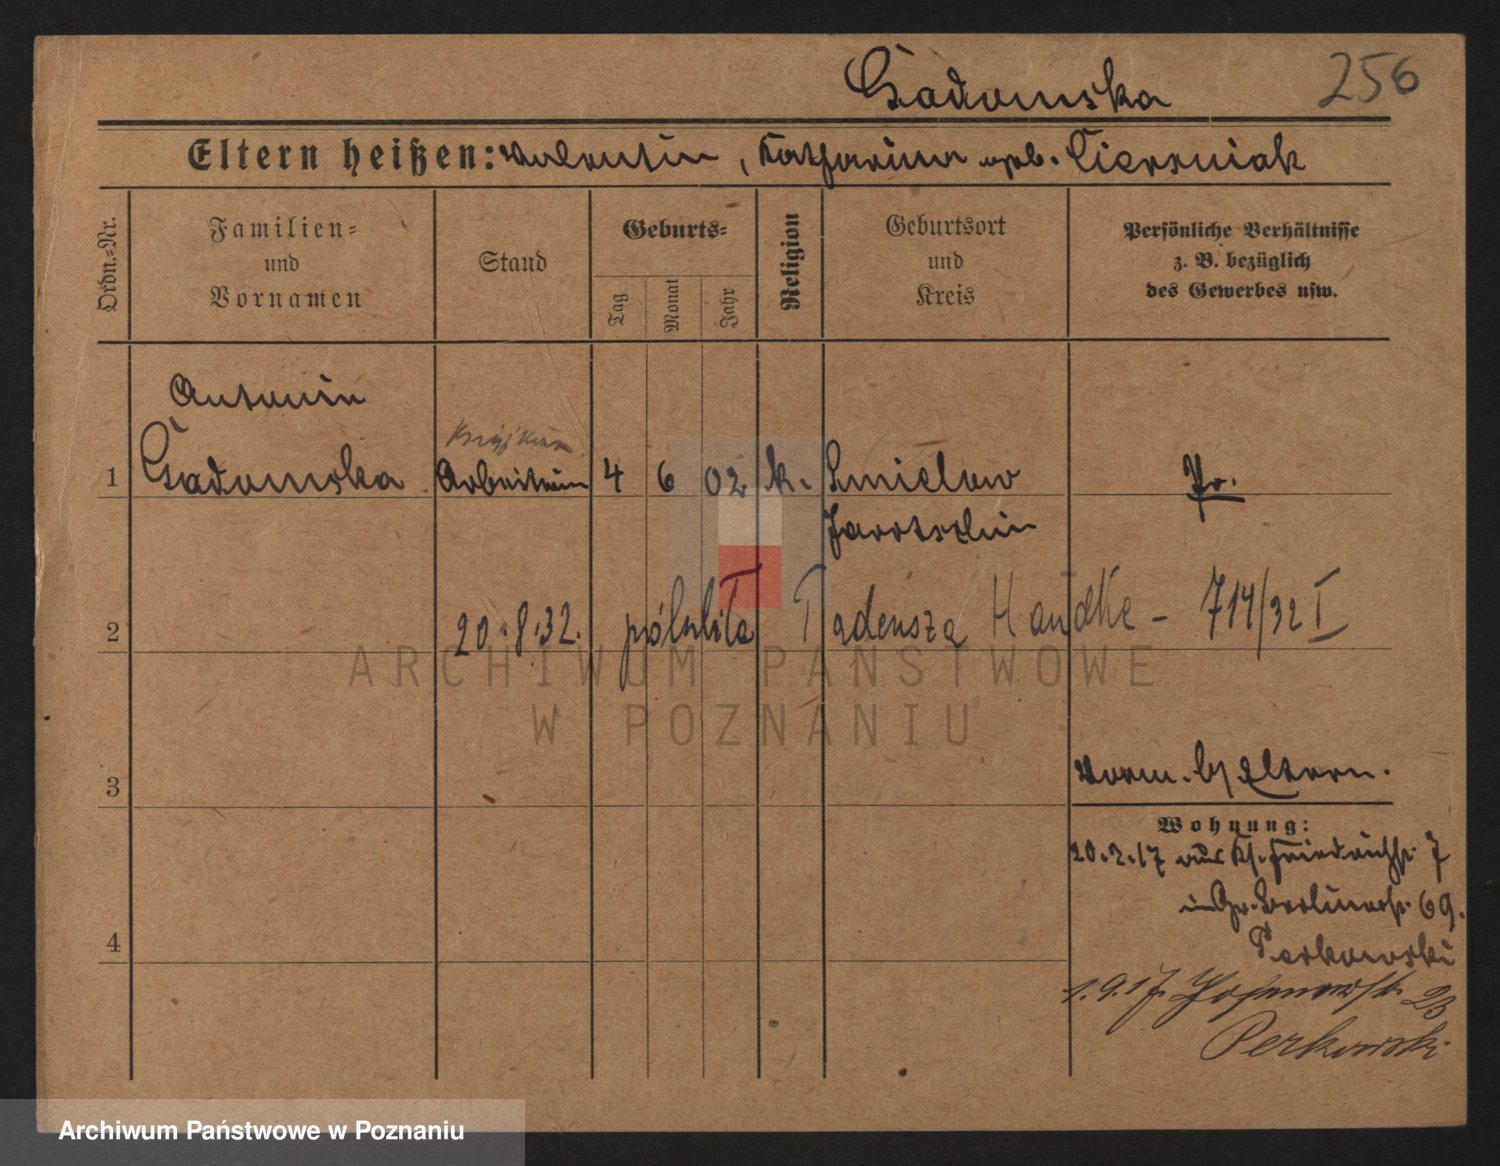 Gadomska 256
Eltern heißen: Valentin, Katharina geb. Cierniak
Ordn.-Nr.
Familien- und Vornamen
Stand
Geburts-
Tag
Monat
Jahr
Religion
Geburtsort und Kreis
Persönliche Verhältnisse
z. B. bezüglich
des Gewerbes usw.
Antonin
1 Gadomska Arbeiterin 4 6 02 k. Smielow Pr.
Jarotschin
2 20.8.32. Tadeusza Handke - 714/32 I
ARCHIWUM PAŃSTWOWE
W POZNANIU
vorm. b/ Eltern.
3
Wohnung:
20.2.17 aus Kl. Friedrichstr. 7
in Gr. Berlinerstr. 69.
4
Perkowski
1.9.17. 23
Perkowski
Archiwum Państwowe w Poznaniu